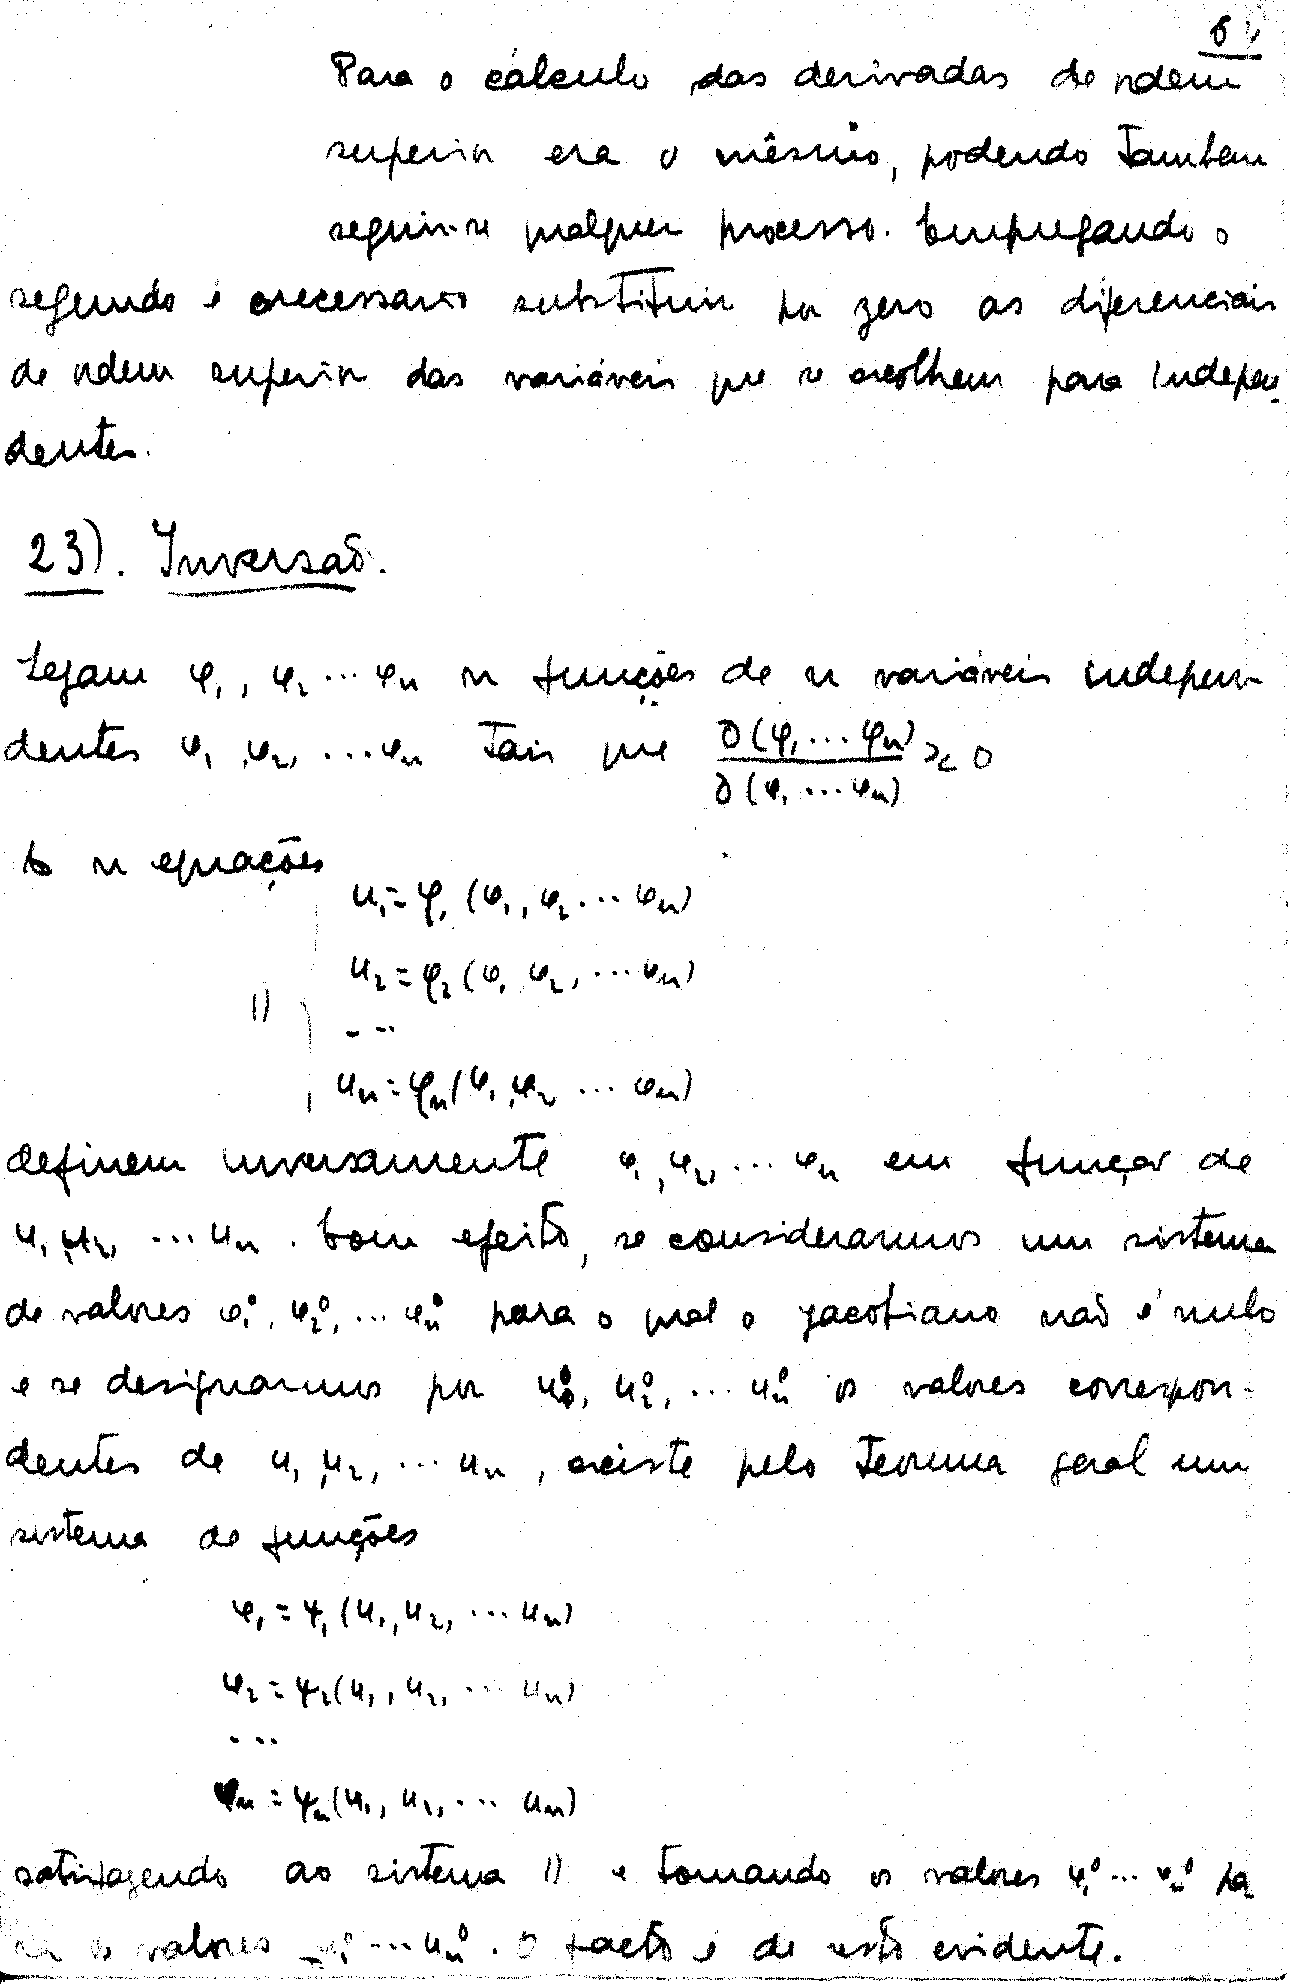 6
Para o cálculo das derivadas de ordem
superior era o mêsmo, podendo tambem
seguir-se qualquer processo. Empregando o
segundo é necessario substituir por zero as diferenciais
de ordem superior das variáveis que se escolhem para indepen-
dentes.
23). Inversão.
Sejam φ₁, φ₂ ... φₙ n funções de n variáveis indepen-
dentes φ₁, φ₂, ... φₙ tais que ∂(φ₁ ... φₙ)/∂(φ₁ ... φₙ) ≷ 0
Es n equações
u₁ = φ₁ (φ₁, φ₂ ... φₙ)
u₂ = φ₂ (φ₁ φ₂, ... φₙ)
1) ...
uₙ = φₙ (φ₁, φ₂ ... φₙ)
definem inversamente φ₁, φ₂, ... φₙ em função de
u₁, u₂, ... uₙ. Com efeito, se considerarmos um sistema
de valores φ₁⁰, φ₂⁰, ... φₙ⁰ para o qual o jacobiano não é nulo
e se designarmos por u₁⁰, u₂⁰, ... uₙ⁰ os valores correspon-
dentes de u₁, u₂, ... uₙ, existe pelo teorema geral um
sistema de funções
φ₁ = ψ₁ (u₁, u₂, ... uₙ)
φ₂ = ψ₂ (u₁, u₂, ... uₙ)
...
φₙ = ψₙ (u₁, u₂, ... uₙ)
satisfazendo ao sistema 1) e tomando os valores φ₁⁰ ... φₙ⁰ pa
ra os valores u₁⁰ ... uₙ⁰. O facto é de resto evidente.